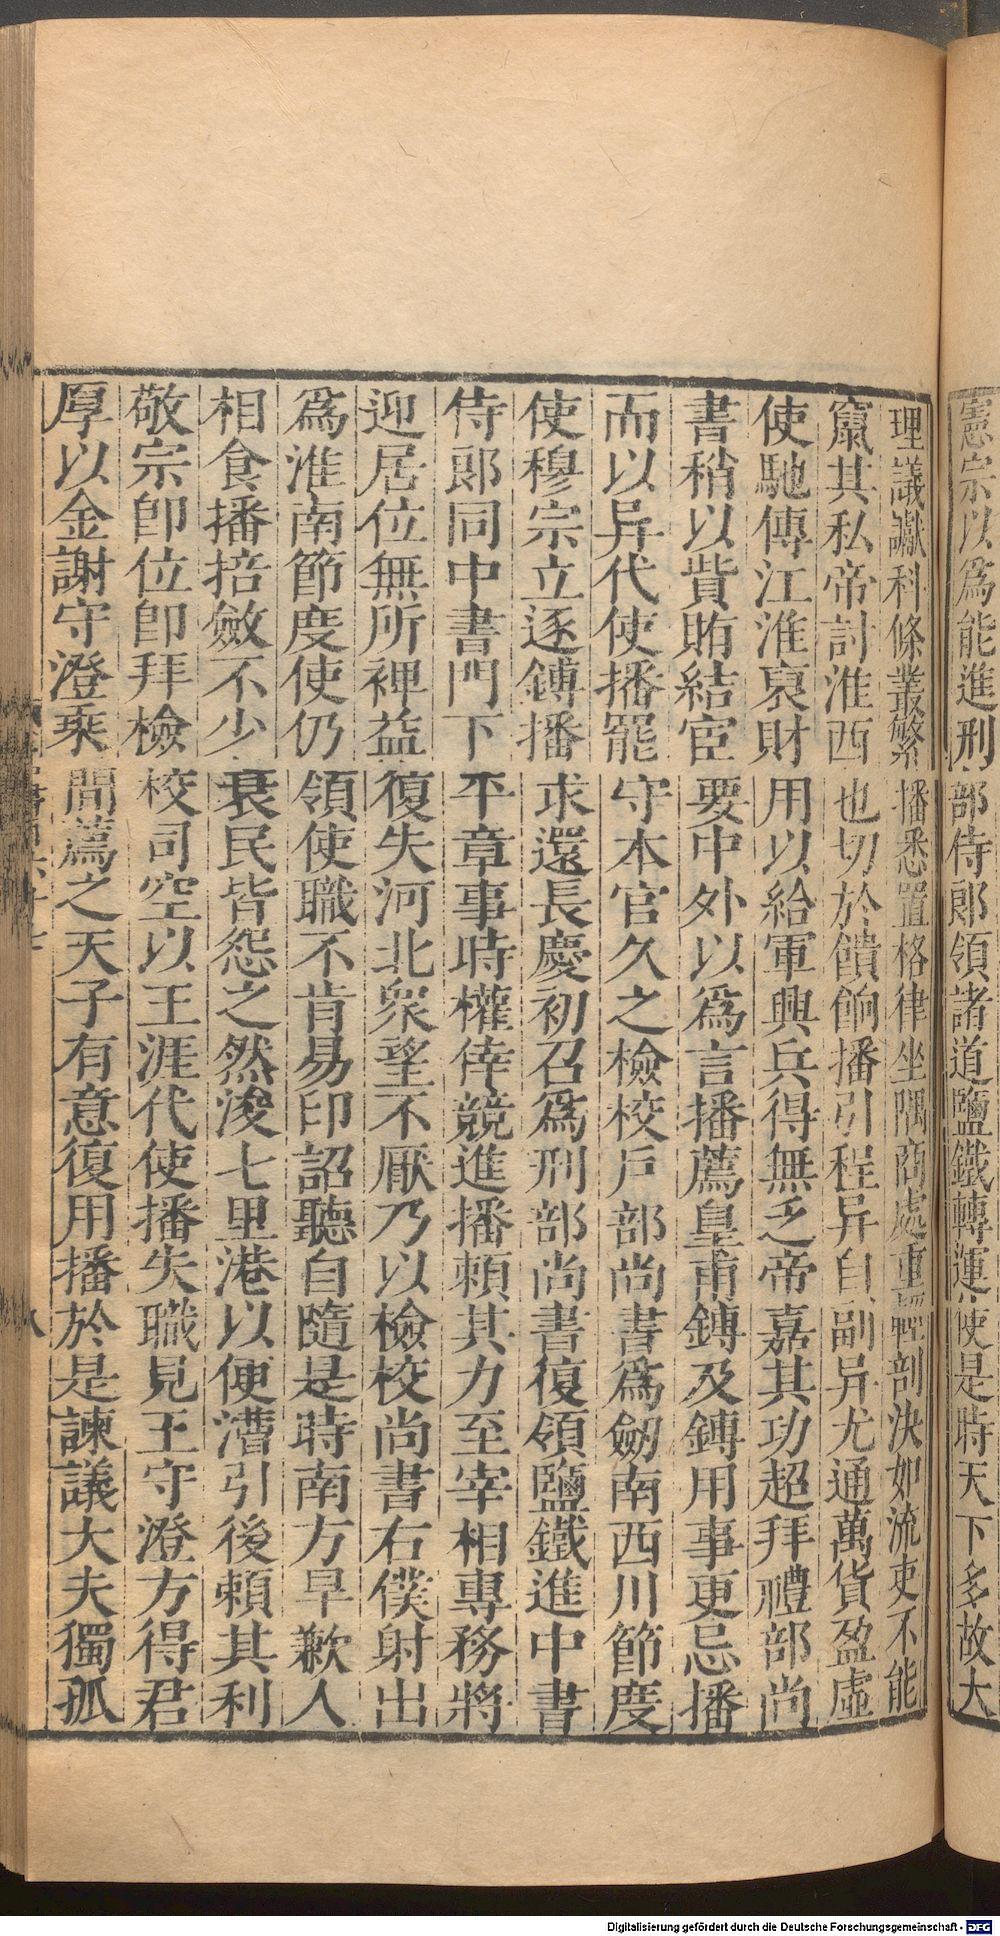 憲宗以爲能進刑部侍郎領諸道鹽鐵轉運使是時天下多故大
理議讞科條叢繁播悉置格律坐隅商處重輕剖決如流吏不能
竄其私帝討淮西也切於饋餉播引程异自副异尤通萬貨盈虛
使馳傳江淮裒財用以給軍興兵得無乏帝嘉其功超拜禮部尚
書稍以貲賄結宦要中外以爲言播薦皇甫鎛及鎛用事更忌播
而以异代使播罷守本官久之檢校戶部尚書爲劒南西川節度
使穆宗立逐鎛播求還長慶初召爲刑部尚書復領鹽鐵進中書
侍郎同中書門下平章事時權倖競進播賴其力至宰相專務將
迎居位無所裨益復失河北衆望不厭乃以檢校尚書右僕射出
爲淮南節度使仍領使職不肯易印詔聽自隨是時南方旱歉人
相食播掊斂不少衰民皆怨之然浚七里港以便漕引後賴其利
敬宗卽位卽拜檢校司空以王涯代使播失職見王守澄方得君
厚以金謝守澄乘間薦之天子有意復用播於是諫議大夫獨孤
八
Digitalisierung gefördert durch die Deutsche Forschungsgemeinschaft - DFG